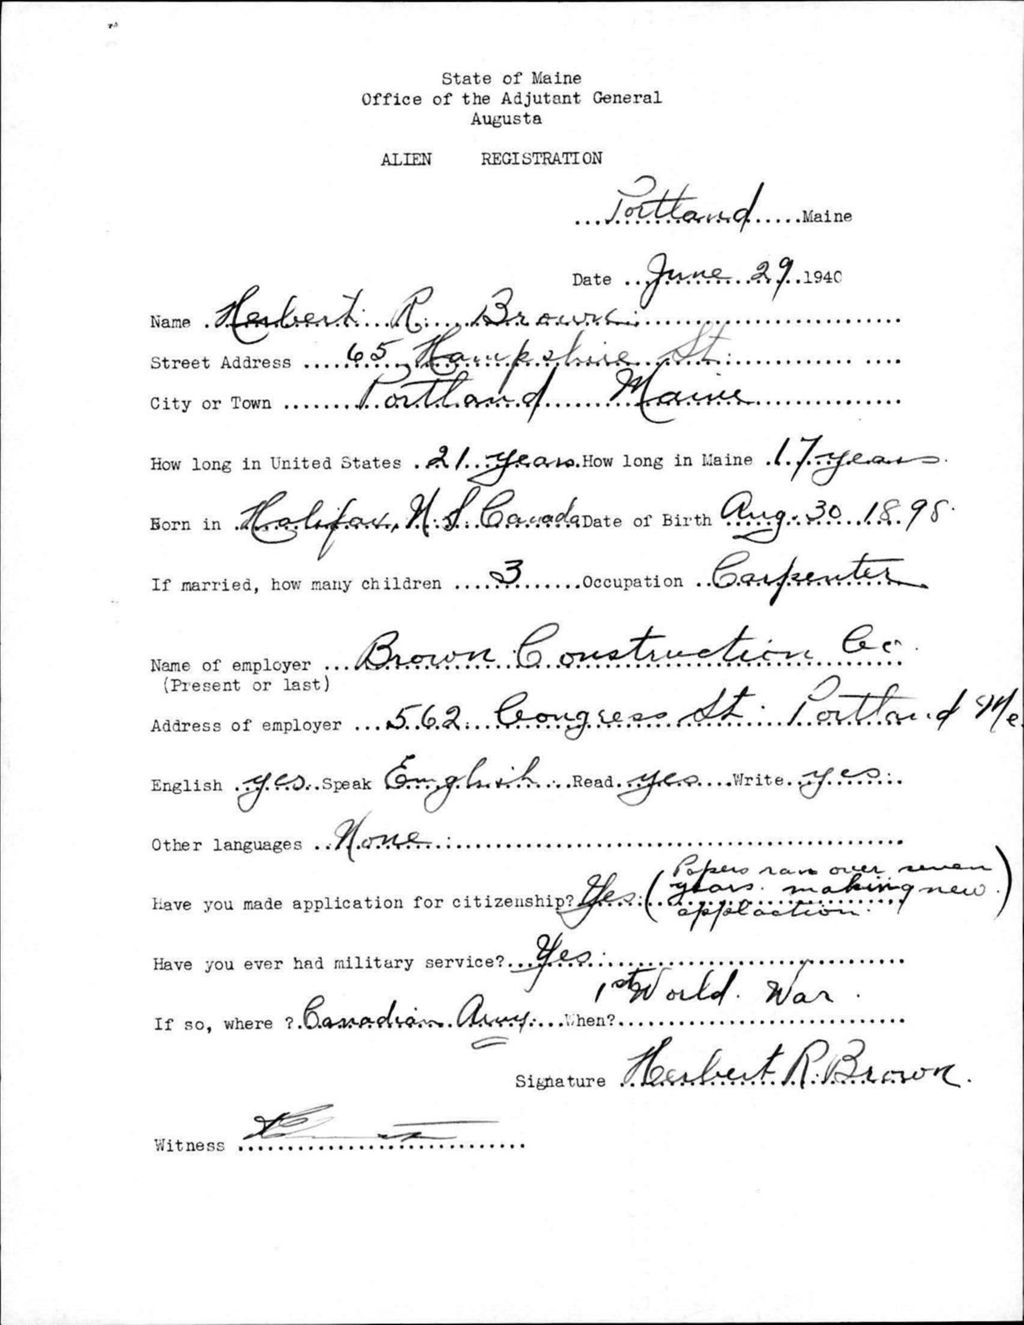 State of Maine
Office of the Adjutant General
Augusta
ALIEN REGISTRATION
Portland Maine
Date June 29 1940
Name Herbert R. Brown
Street Address 65 Hampshire St.
City or Town Portland Maine
How long in United States 21 years How long in Maine 17 years
Born in Halifax, N.S. Canada Date of Birth Aug. 30 1898
If married, how many children 3 Occupation Carpenter
Name of employer Brown Construction Co
(Present or last)
Address of employer 562 Congress St. Portland Me
English yes Speak English Read yes Write yes
Other languages None
Have you made application for citizenship? Yes (Papers ran over seven
years. making new
applaction.)
Have you ever had military service? Yes
If so, where ? Canadian Army When? 1st World War
Signature Herbert R. Brown
Witness